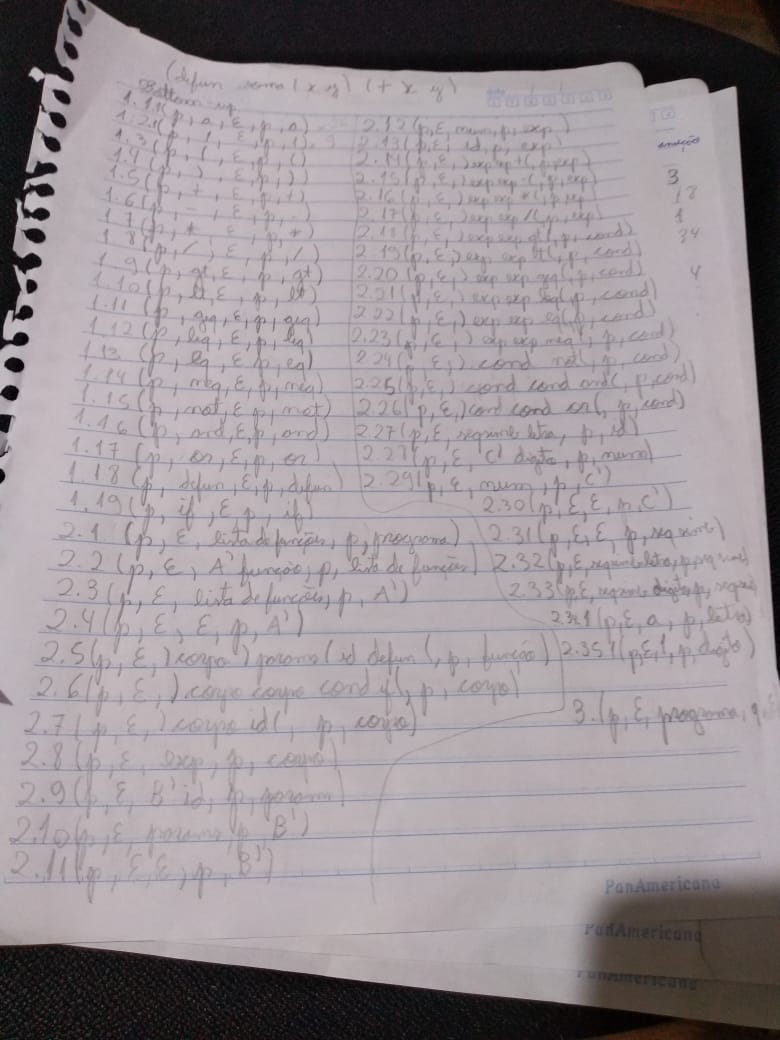 (defun soma (x y) (+ x y)
Bottom-up
1.1.1(p, a, ε, p, a)
1.2.1(p, 1, ε, p, 1)
1.3(p, (, ε, p, ()
1.4(p, ), ε, p, ))
1.5(p, +, ε, p, +)
1.6(p, -, ε, p, -)
1.7(p, *, ε, p, *)
1.8(p, /, ε, p, /)
1.9(p, gt, ε, p, gt)
1.10(p, lt, ε, p, lt)
1.11(p, geq, ε, p, geq)
1.12(p, leq, ε, p, leq)
1.13(p, eq, ε, p, eq)
1.14(p, neq, ε, p, neq)
1.15(p, not, ε, p, not)
1.16(p, and, ε, p, and)
1.17(p, or, ε, p, or)
1.18(p, defun, ε, p, defun)
1.19(p, if, ε, p, if)
2.1(p, ε, lista de funções, p, programa)
2.2(p, ε, A' função, p, lista de funções)
2.3(p, ε, lista de funções, p, A')
2.4(p, ε, ε, p, A')
2.5(p, ε, )corpo )params( id defun (, p, função)
2.6(p, ε, ) corpo corpo cond if(, p, corpo)
2.7(p, ε, ) corpo id(, p, corpo)
2.8(p, ε, exp, p, corpo)
2.9(p, ε, B' id, p, params)
2.10(p, ε, params, p, B')
2.11(p, ε, ε, p, B')
2.12(p, ε, num, p, exp)
2.13(p, ε, id, p, exp)
2.14(p, ε, ) exp exp +(, p, exp)
2.15(p, ε, ) exp exp -(, p, exp)
2.16(p, ε, ) exp exp *(, p, exp)
2.17(p, ε, ) exp exp /(, p, exp)
2.18(p, ε, ) exp exp gt(, p, cond)
2.19(p, ε, ) exp exp lt(, p, cond)
2.20(p, ε, ) exp exp geq(, p, cond)
2.21(p, ε, ) exp exp leq(, p, cond)
2.22(p, ε, ) exp exp eq(, p, cond)
2.23(p, ε, ) exp exp neq(, p, cond)
2.24(p, ε, ) cond not(, p, cond)
2.25(p, ε, ) cond cond and(, p, cond)
2.26(p, ε, ) cond cond or(, p, cond)
2.27(p, ε, seqsime letra, p, id)
2.28(p, ε, C' digito, p, num)
2.29(p, ε, num, p, C')
2.30(p, ε, ε, p, C')
2.31(p, ε, ε, p, seqsime)
2.32(p, ε, seqsime letra, p, seqsime)
2.33(p, ε, seqsime digito, p, seqsime)
2.34.1(p, ε, a, p, letra)
2.35.1(p, ε, 1, p, digito)
3.(p, ε, programa, q,
3
18
1
34
4
PanAmericana
PanAmericana
PanAmericana